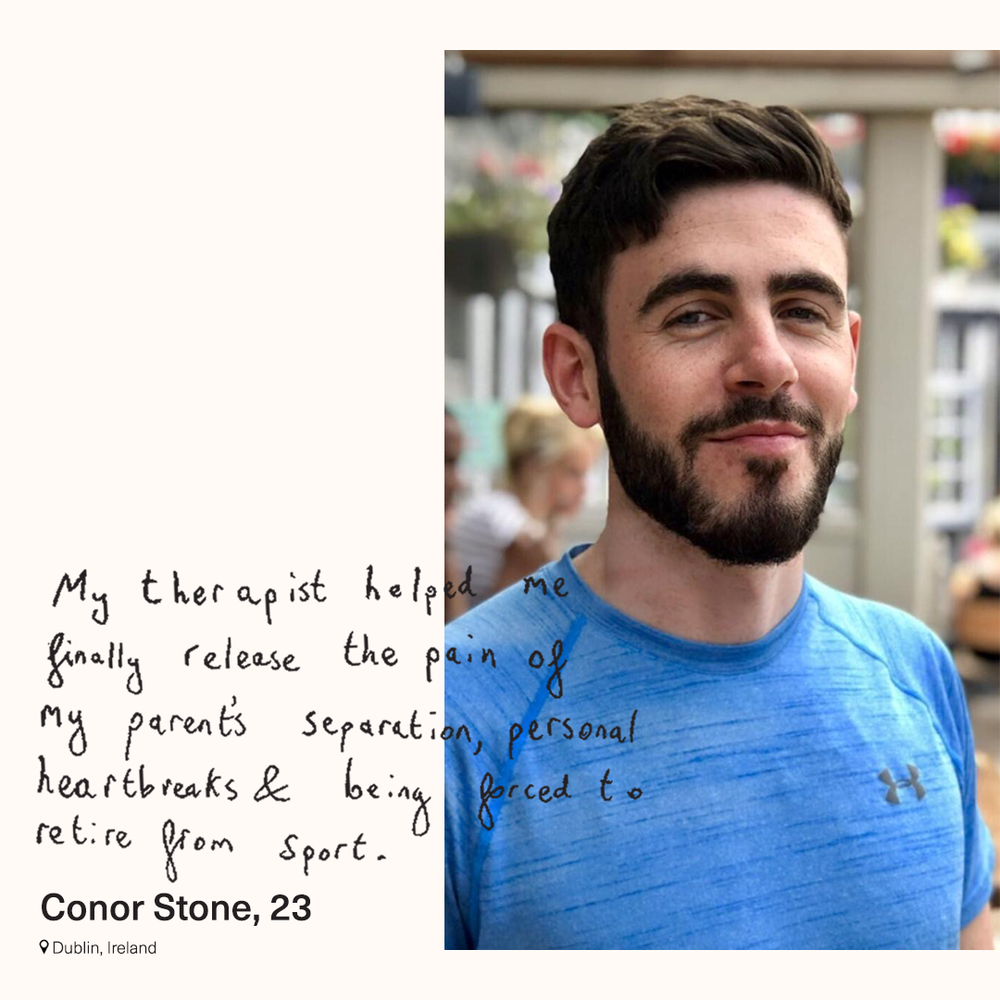 My therapist helped me
finally release the pain of
my parent's separation, personal
heartbreaks & being forced to
retire from sport.
Conor Stone, 23
Dublin, Ireland